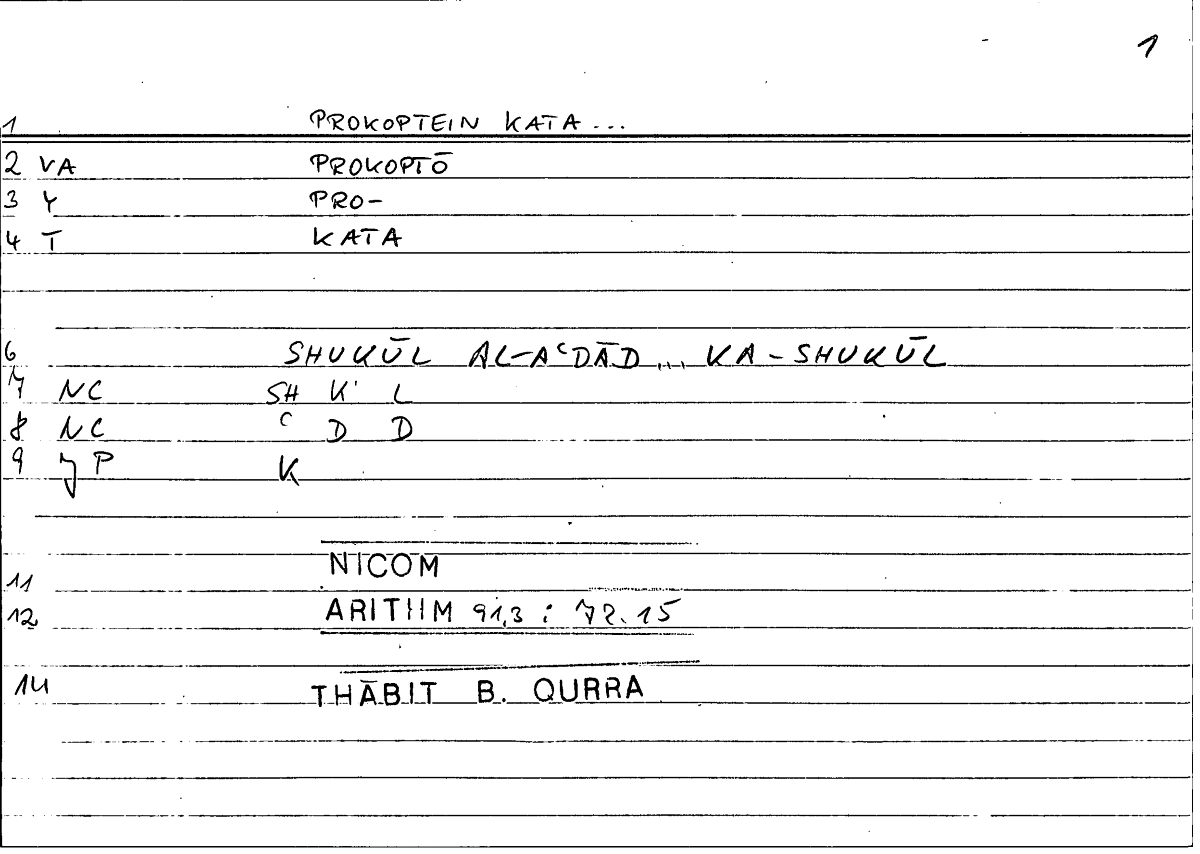 1
1 PROKOPTEIN KATA ...
2 VA PROKOPTŌ
3 Y PRO-
4 T KATA
6 SHUKŪL AL-AʿDĀD ... KA-SHUKŪL
7 NC SH K L
8 NC ʿ D D
9 JP K
NICOM
11
12 ARITHM 91,3 : 72.15
14 THĀBIT B. QURRA